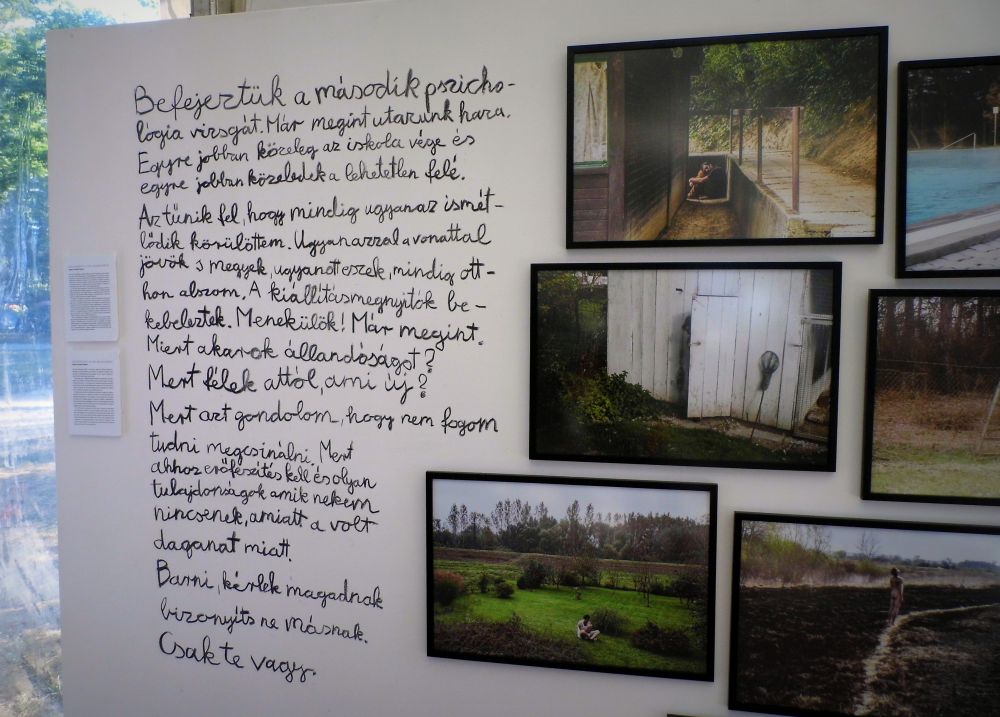 Befejeztük a második pszicho-
lógia vizsgát. Már megint utazunk haza.
Egyre jobban közeleg az iskola vége és
egyre jobban közeledek a lehetetlen felé.
Az tűnik fel, hogy mindig ugyanaz ismét-
lődik körülöttem. Ugyanazzal a vonattal
jövök s megyek, ugyanott eszek, mindig ott-
hon alszom. A kiállításmegnyitók be-
kebeleztek. Menekülök! Már megint.
Miért akarok állandóságot?
Mert félek attól, ami új?
Mert azt gondolom, hogy nem fogom
tudni megcsinálni. Mert
ahhoz erőfeszítés kell és olyan
tulajdonságok amik nekem
nincsenek, amiatt a volt
daganat miatt.
Barni, kérlek magadnak
bizonyíts ne másnak.
Csak te vagy.